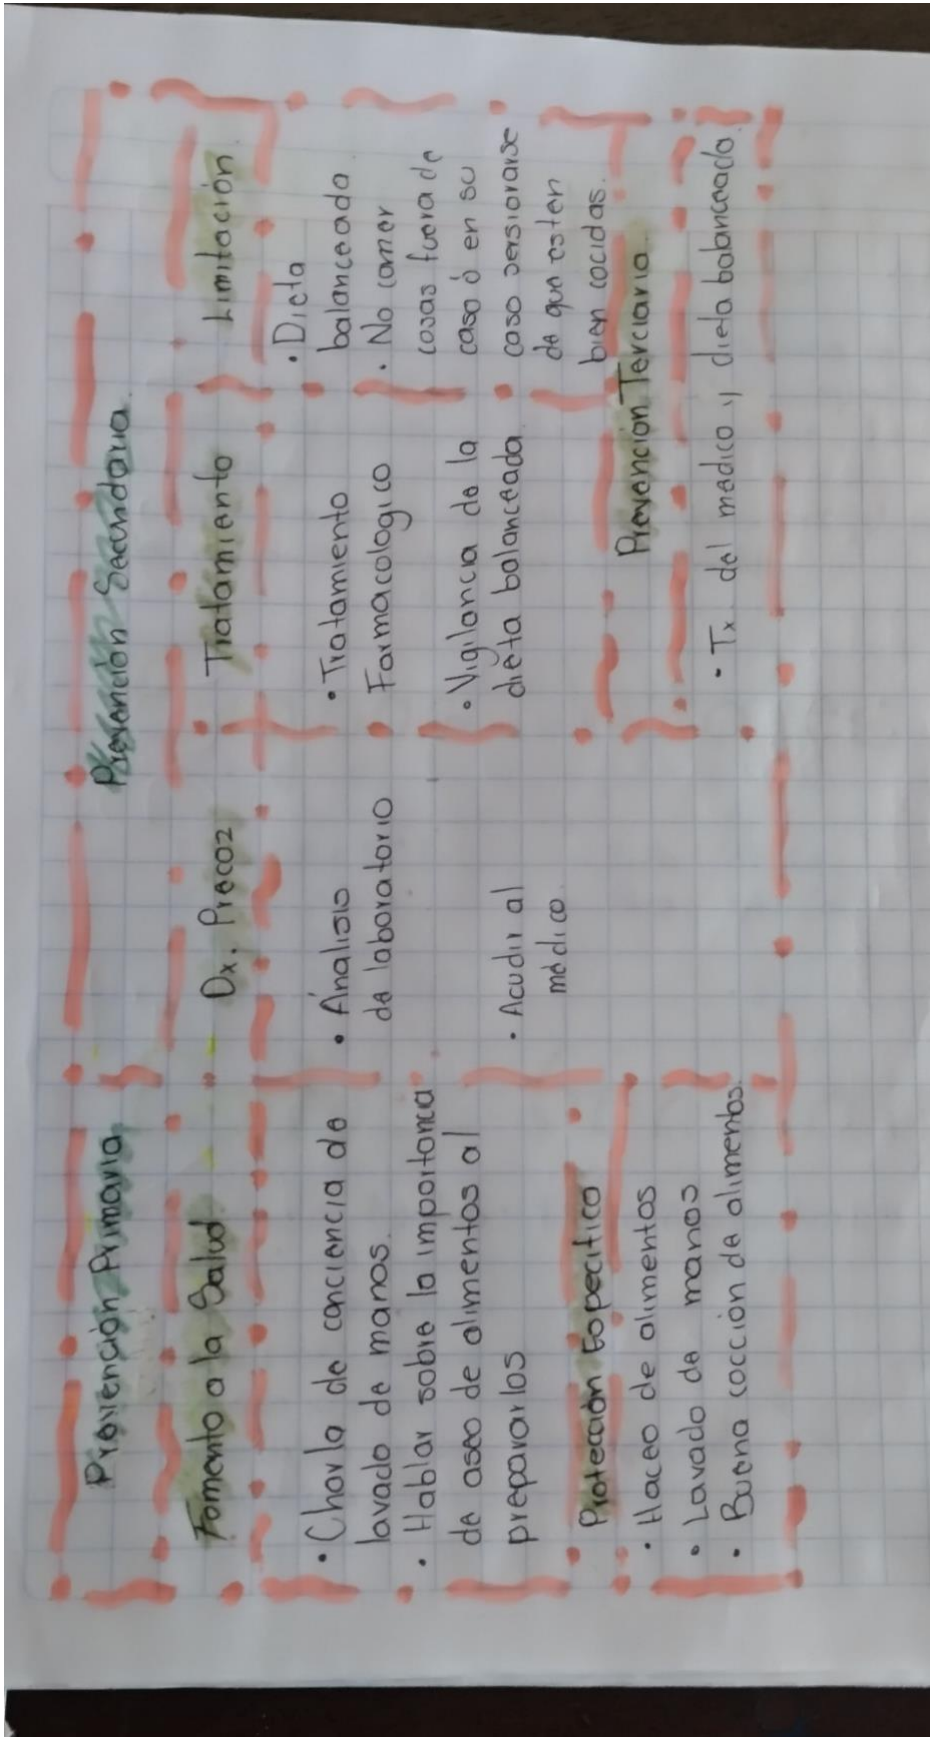 Prevención Primaria
Fomento a la Salud
• Charla de conciencia de
lavado de manos.
• Hablar sobre la importanca
de aseo de alimentos al
prepararlos
Protección Especifico
• Haceo de alimentos
• Lavado de manos
• Buena cocción de alimentos.
Prevención Secundaria.
Dx. Precoz
• Ánalisis
de laboratorio
• Acudir al
médico.
Tratamiento
• Tratamiento
Farmacologico
• Vigilancia de la
dieta balanceada
Limitación
• Dieta
balanceada
• No comer
cosas fuera de
casa ó en su
caso sersiorarse
de que esten
bien cocidas.
Prevención Terciaria
• Tx. del médico y dieta balanceada.